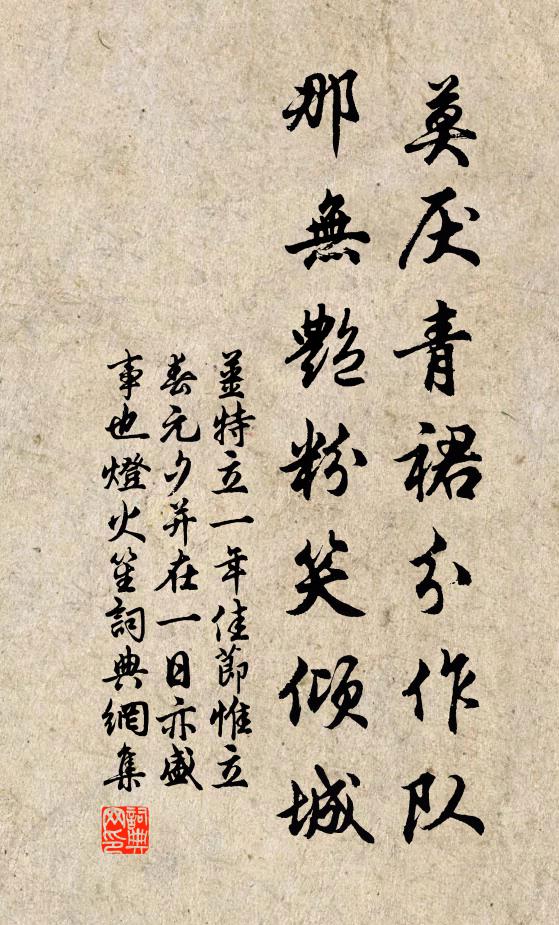 莫厌青裙分作队
那無艶粉笑倾城
薑特立一年佳節惟立
春元夕并在一日亦盛
事也燈火笙詞典網集
詞典
网印